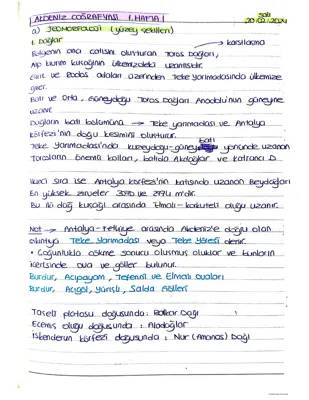 AKDENİZ COĞRAFYASI 1.HAFTA
Salı
20.02.2024
a) JEOMORFOLOJİ (yüzey şekilleri)
1. Dağlar → karşılarına
Bölgenin ana çatısını oluşturan Toros Dağları,
Alp kıvrım kuşağının ülkemizdeki uzantısıdır.
Girit ve Rodos adaları üzerinden Teke Yarımadasında ülkemize
girer.
Batı ve Orta, Güneydoğu Toros Dağları Anadolu'nun güneyine
uzanır
Dağların batı bölümünü → Teke yarımadası ve Antalya
Körfezi'nin doğu kesimini oluşturur.
Teke Yarımadası'nda kuzeydoğu-güney batı yönünde uzanan
Torosların önemli kolları, batıda Akdağlar ve Katrancı D.
İkinci sıra ise Antalya körfezi'nin batısında uzanan Beydağları
En yüksek zirveler 3070 ve
Bu iki dağ kuşağı arasında Elmalı-Korkuteli oluğu uzanır.
Not → Antalya-Fethiye arasında Akdeniz'e doğru olan
çıkıntıya Teke Yarımadası veya Teke Yöresi denir.
• Çoğunlukla çökme sonucu oluşmuş oluklar ve bunların
içerisinde ova ve göller bulunur.
Burdur, Acıpayam, Tefenni ve Elmalı ovaları
Burdur, Acıgöl, Yarışlı, Salda Gölleri
Taşeli platosu doğusunda: Bolkar Dağı
Ecemiş oluğu doğusunda: Aladağlar
İskenderun körfezi doğusunda: Nur (Amanos) Dağı